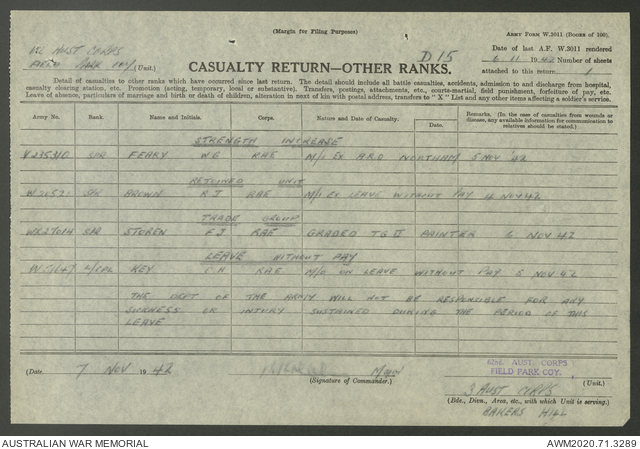 (Margin for Filing Purposes)
ARMY FORM W.3011 (BOOKS OF 100).
AUST CORPS
FIELD PARK COY (Unit.)
D15
Date of last A.F. W.3011 rendered
6 11 1942 Number of sheets
attached to this return 1
CASUALTY RETURN—OTHER RANKS.
Detail of casualties to other ranks which have occurred since last return. The detail should include all battle casualties, accidents, admission to and discharge from hospital,
casualty clearing station, etc. Promotion (acting, temporary, local or substantive). Transfers, postings, attachments, etc., courts-martial, field punishment, forfeiture of pay, etc.
Leave of absence, particulars of marriage and birth or death of children, alteration in next of kin with postal address, transfers to "X" List and any other items affecting a soldier's service.
Army No. Rank. Name and Initials. Corps. Nature and Date of Casualty. Date. Remarks, (In the case of casualties from wounds or disease, any available information for communication to relatives should be stated.)
STRENGTH INCREASE
SPR FEARY W G RAE M/I EX A.R.O NORTHAM 5 NOV '42
REJOINED UNIT
SPR BROWN R J RAE M/I EX LEAVE WITHOUT PAY 4 NOV 42
TRADE GROUP
WX27014 SPR STOREN F J RAE GRADED TG II PAINTER 6 NOV 42
LEAVE WITHOUT PAY
L/CPL KEY C H RAE M/O ON LEAVE WITHOUT PAY 5 NOV 42
THE DEPT OF THE ARMY WILL NOT BE RESPONSIBLE FOR ANY
SICKNESS OR INJURY SUSTAINED DURING THE PERIOD OF THIS
LEAVE
(Date 7 NOV 1942 Major
(Signature of Commander.)
62nd. AUST. CORPS
FIELD PARK COY. (Unit.)
3 AUST CORPS
(Bde., Divn., Area, etc., with which Unit is serving.)
BAKERS HILL
AUSTRALIAN WAR MEMORIAL
AWM2020.71.3289